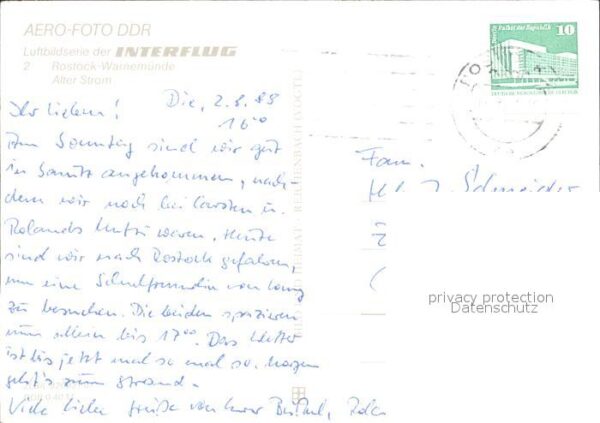 AERO-FOTO DDR
Luftbildserie der INTERFLUG
2 Rostock-Warnemünde
Alter Strom
Berlin, Palast der Republik 10
Ihr Lieben! Die, 2.8.88
16⁰⁰
Am Sonntag sind wir gut
in Sanitz angekommen, nach-
dem wir noch bei Carsten u.
Rolands waren. Heute
sind wir nach Rostock gefahren,
um eine Schulfreundin von
zu besuchen. Die beiden spazieren
nun allein bis 17⁰⁰. Das Wetter
ist bis jetzt mal so mal so. Morgen
geht's zum Strand.
Viele liebe Grüße von
Fam.
Schneider
privacy protection
Datenschutz